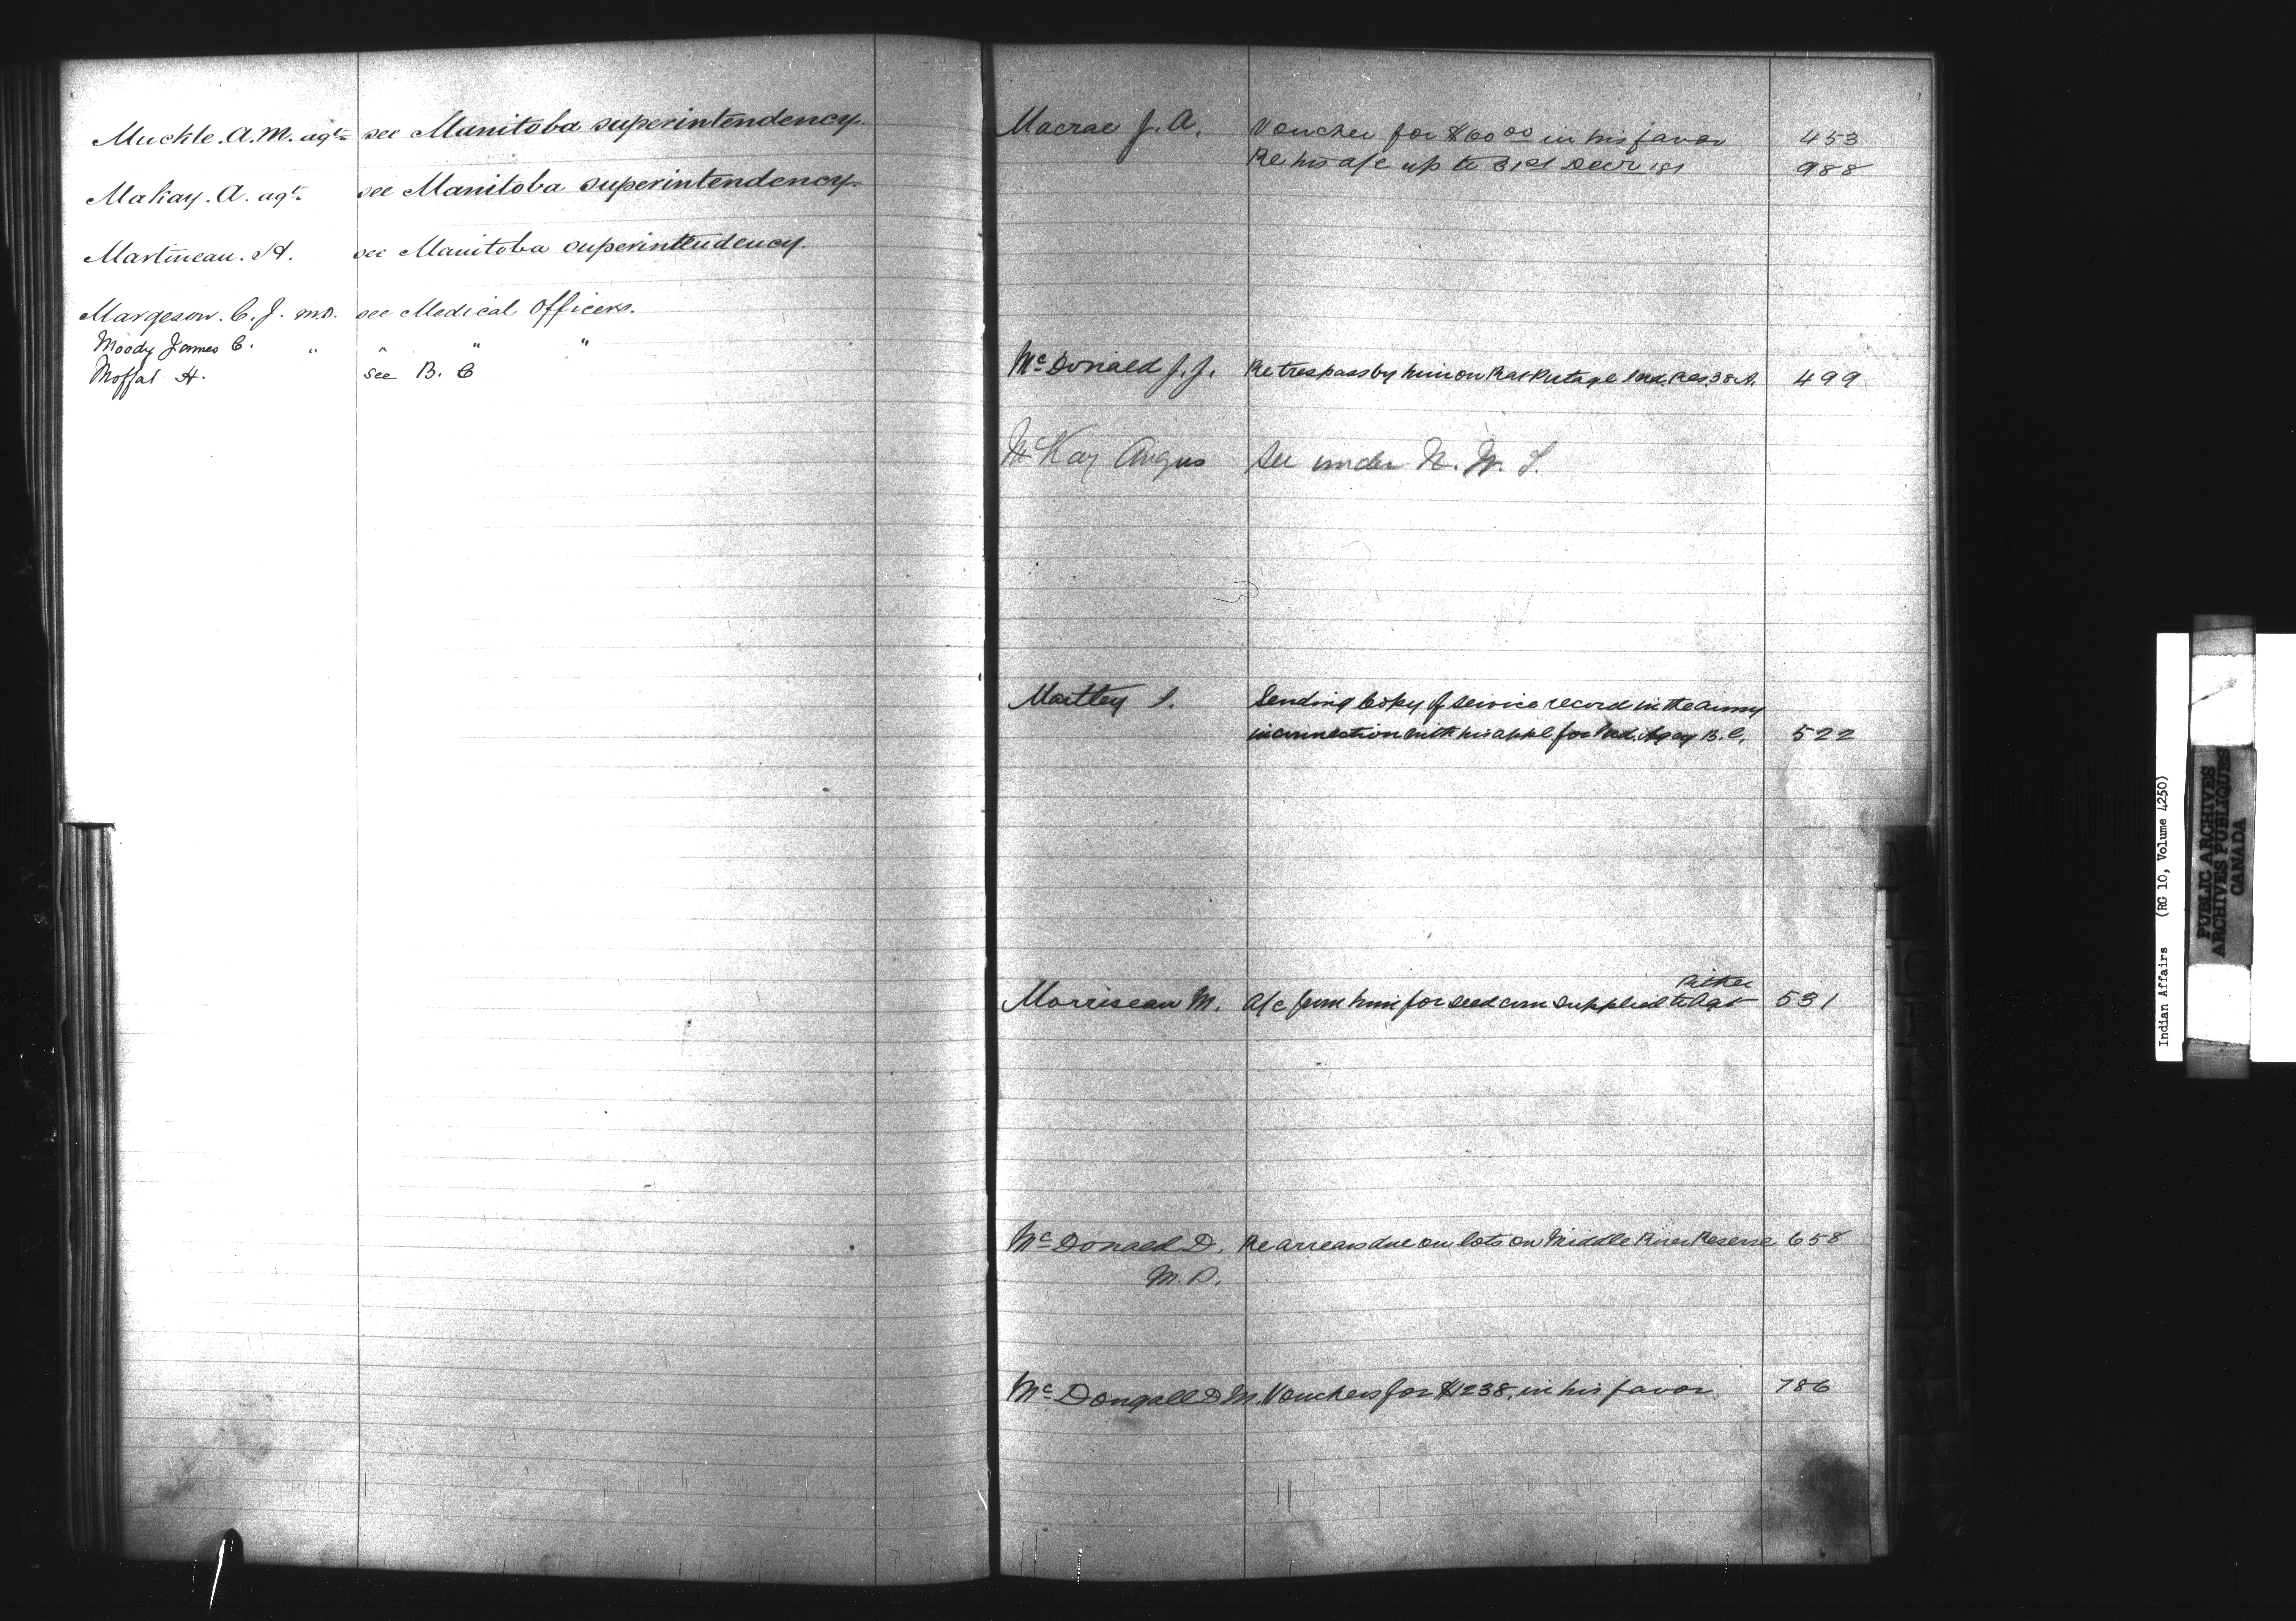 Muckle. A. M. agt. see Manitoba superintendency.
MaKay. A. agt. see Manitoba superintendency.
Martineau. H. see Manitoba superintendency.
Margeson. C. J. M.D. see Medical Officers.
Moody James C. " " " "
Moffat H. see B. C
Macrae J. A. Voucher for $60 00 in his favor 453
Re his a/c up to 31st Decr '81 988
McDonald J. J. Re trespass by him on Rat Portage Ind. Res. 38 A. 499
McKay Angus See under N. W. T.
Martley J. Sending Copy of service record in the army
in connection with his appl for Ind. Agcy B. C. 522
Pither
Morriseau M. a/c from him for seed corn supplied to Agt 531
McDonald D. Re arrears due on lots on Middle River Reserve 658
M. D.
McDougall D. M. Vouchers for $1238. in his favor 786
M
N
O
P
Q
R
S
T
U
V
W
Y
Indian Affairs (RG 10, Volume 4250)
PUBLIC ARCHIVES
ARCHIVES PUBLIQUES
CANADA